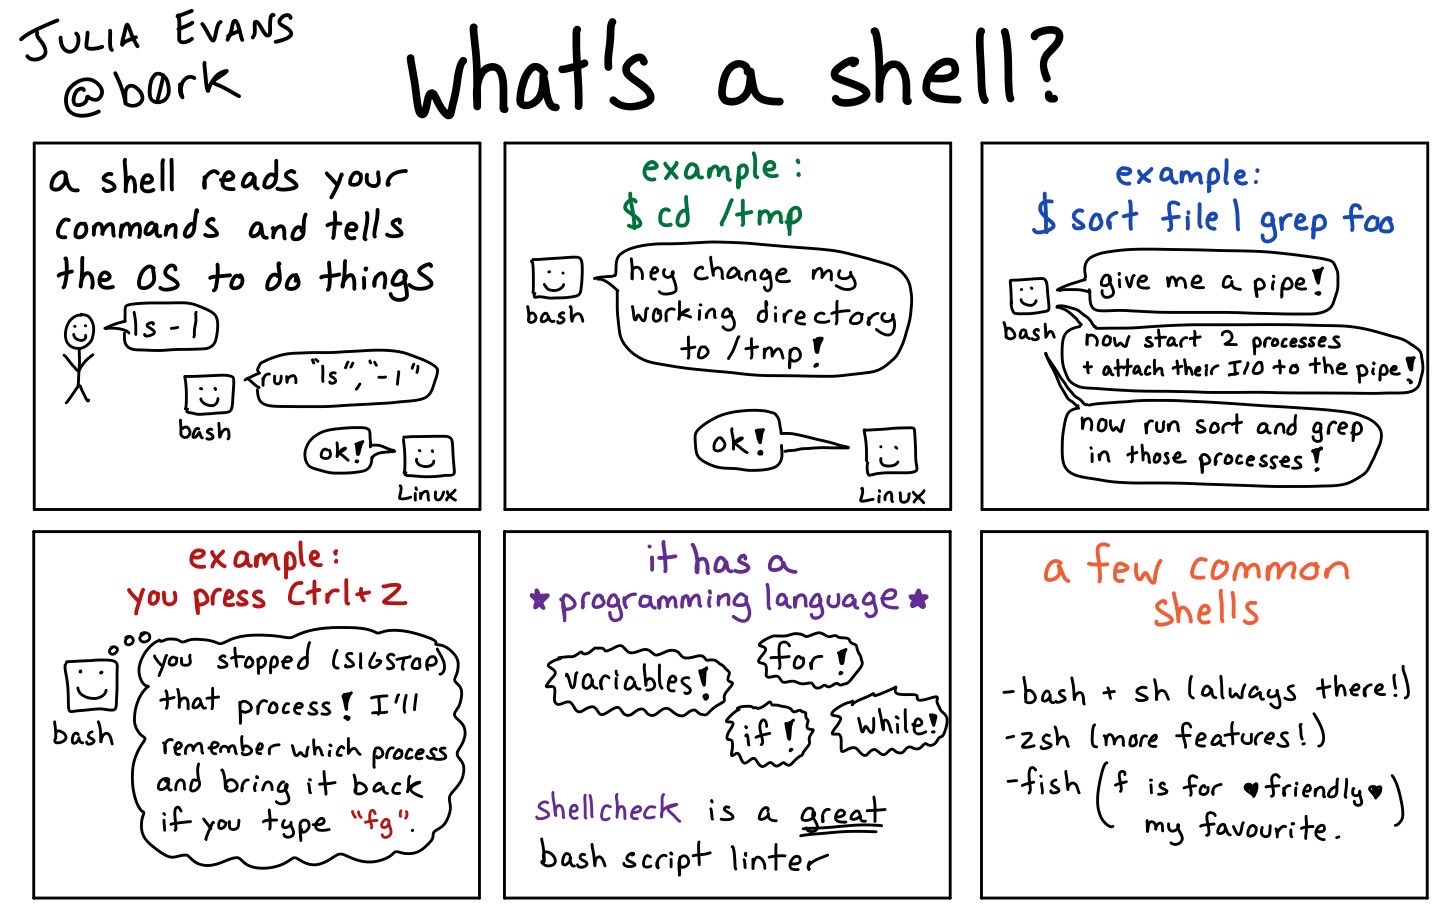 JULIA EVANS
@b0rk
what's a shell?
a shell reads your
commands and tells
the OS to do things
ls -l
run "ls", "-l"
bash
ok!
Linux
example:
$ cd /tmp
hey change my
working directory
to /tmp!
bash
ok!
Linux
example:
$ sort file | grep foo
give me a pipe!
bash
now start 2 processes
+ attach their I/O to the pipe!
now run sort and grep
in those processes!
example:
you press Ctrl+Z
you stopped (SIGSTOP)
that process! I'll
bash
remember which process
and bring it back
if you type "fg".
it has a
★ programming language ★
variables!
for!
if!
while!
shellcheck is a great
bash script linter
a few common
shells
-bash + sh (always there!)
-zsh (more features!)
-fish (f is for ♥friendly♥
my favourite.)